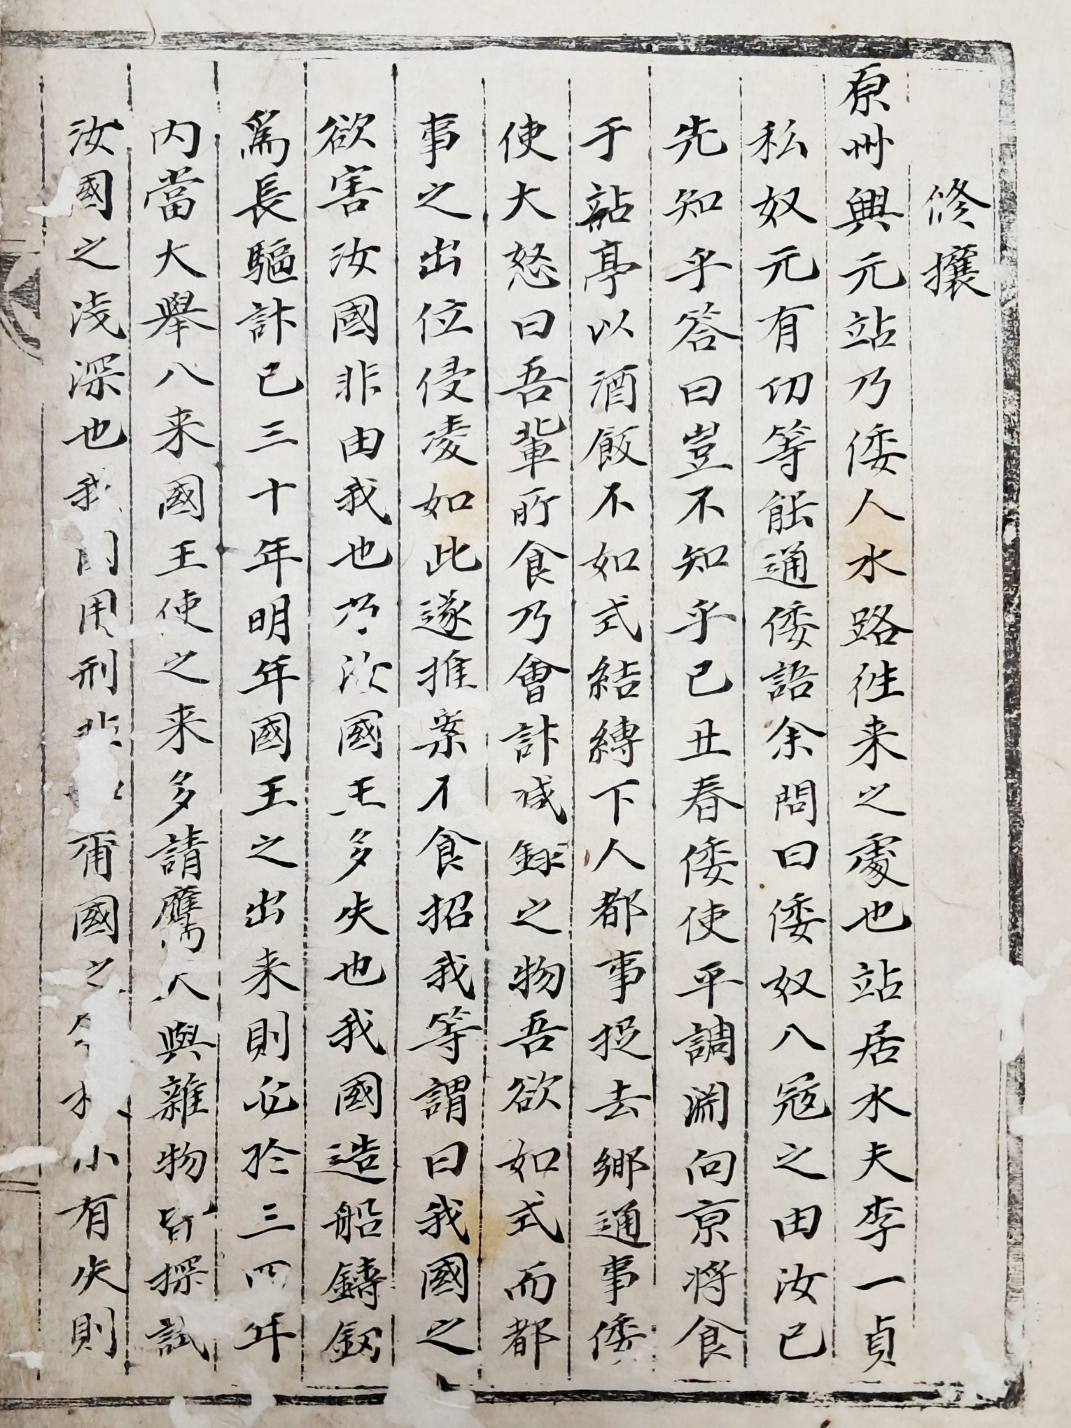 修撰
原州興元站乃倭人水路徃来之處也站居水夫李一貞
私奴元有仞等能通倭語余問曰倭奴入冦之由汝已
先知乎答曰豈不知乎已丑春倭使平調渊向京将食
于站亭以酒飯不如式結縛下人都事捉去鄉通事倭
使大怒曰吾輩所食乃會計减録之物吾欲如式而都
事之出位侵凌如此遂推案不食招我等謂曰我國之
欲害汝國非由我也乃汝國王多失也我國造船鑄釼
爲長驅計已三十年明年國王之出来則必於三四年
内當大舉入来國王使之来多請鷹犬與雜物皆探試
汝國之浅深也我用刑非爾國之小有失則